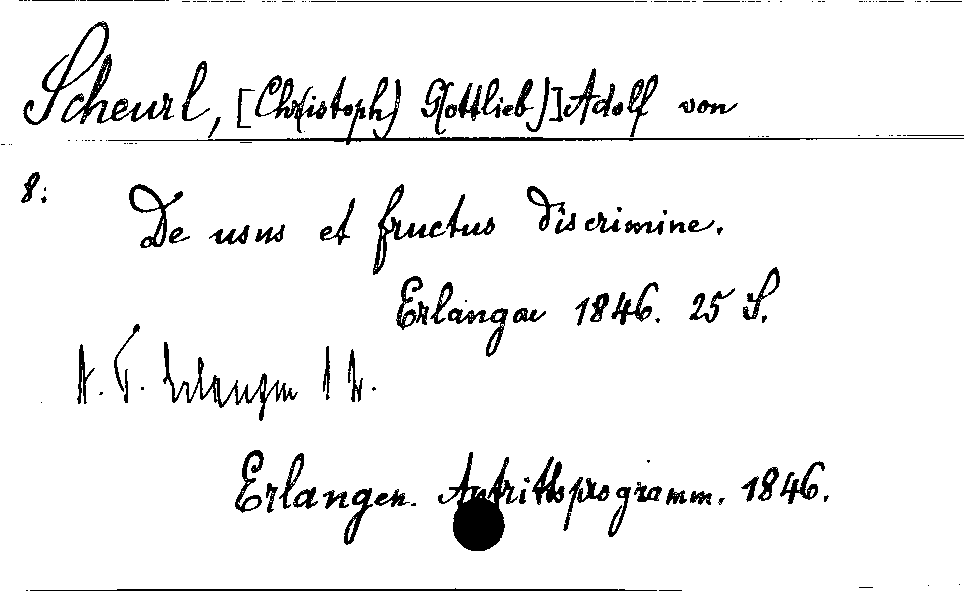 Scheurl, [Ch(ristoph) G(ottlieb)] Adolf von
8:
De usus et fructus discrimine.
Erlangae 1846. 25 S.
Erlangen
Erlangen. Antrittsprogramm. 1846.